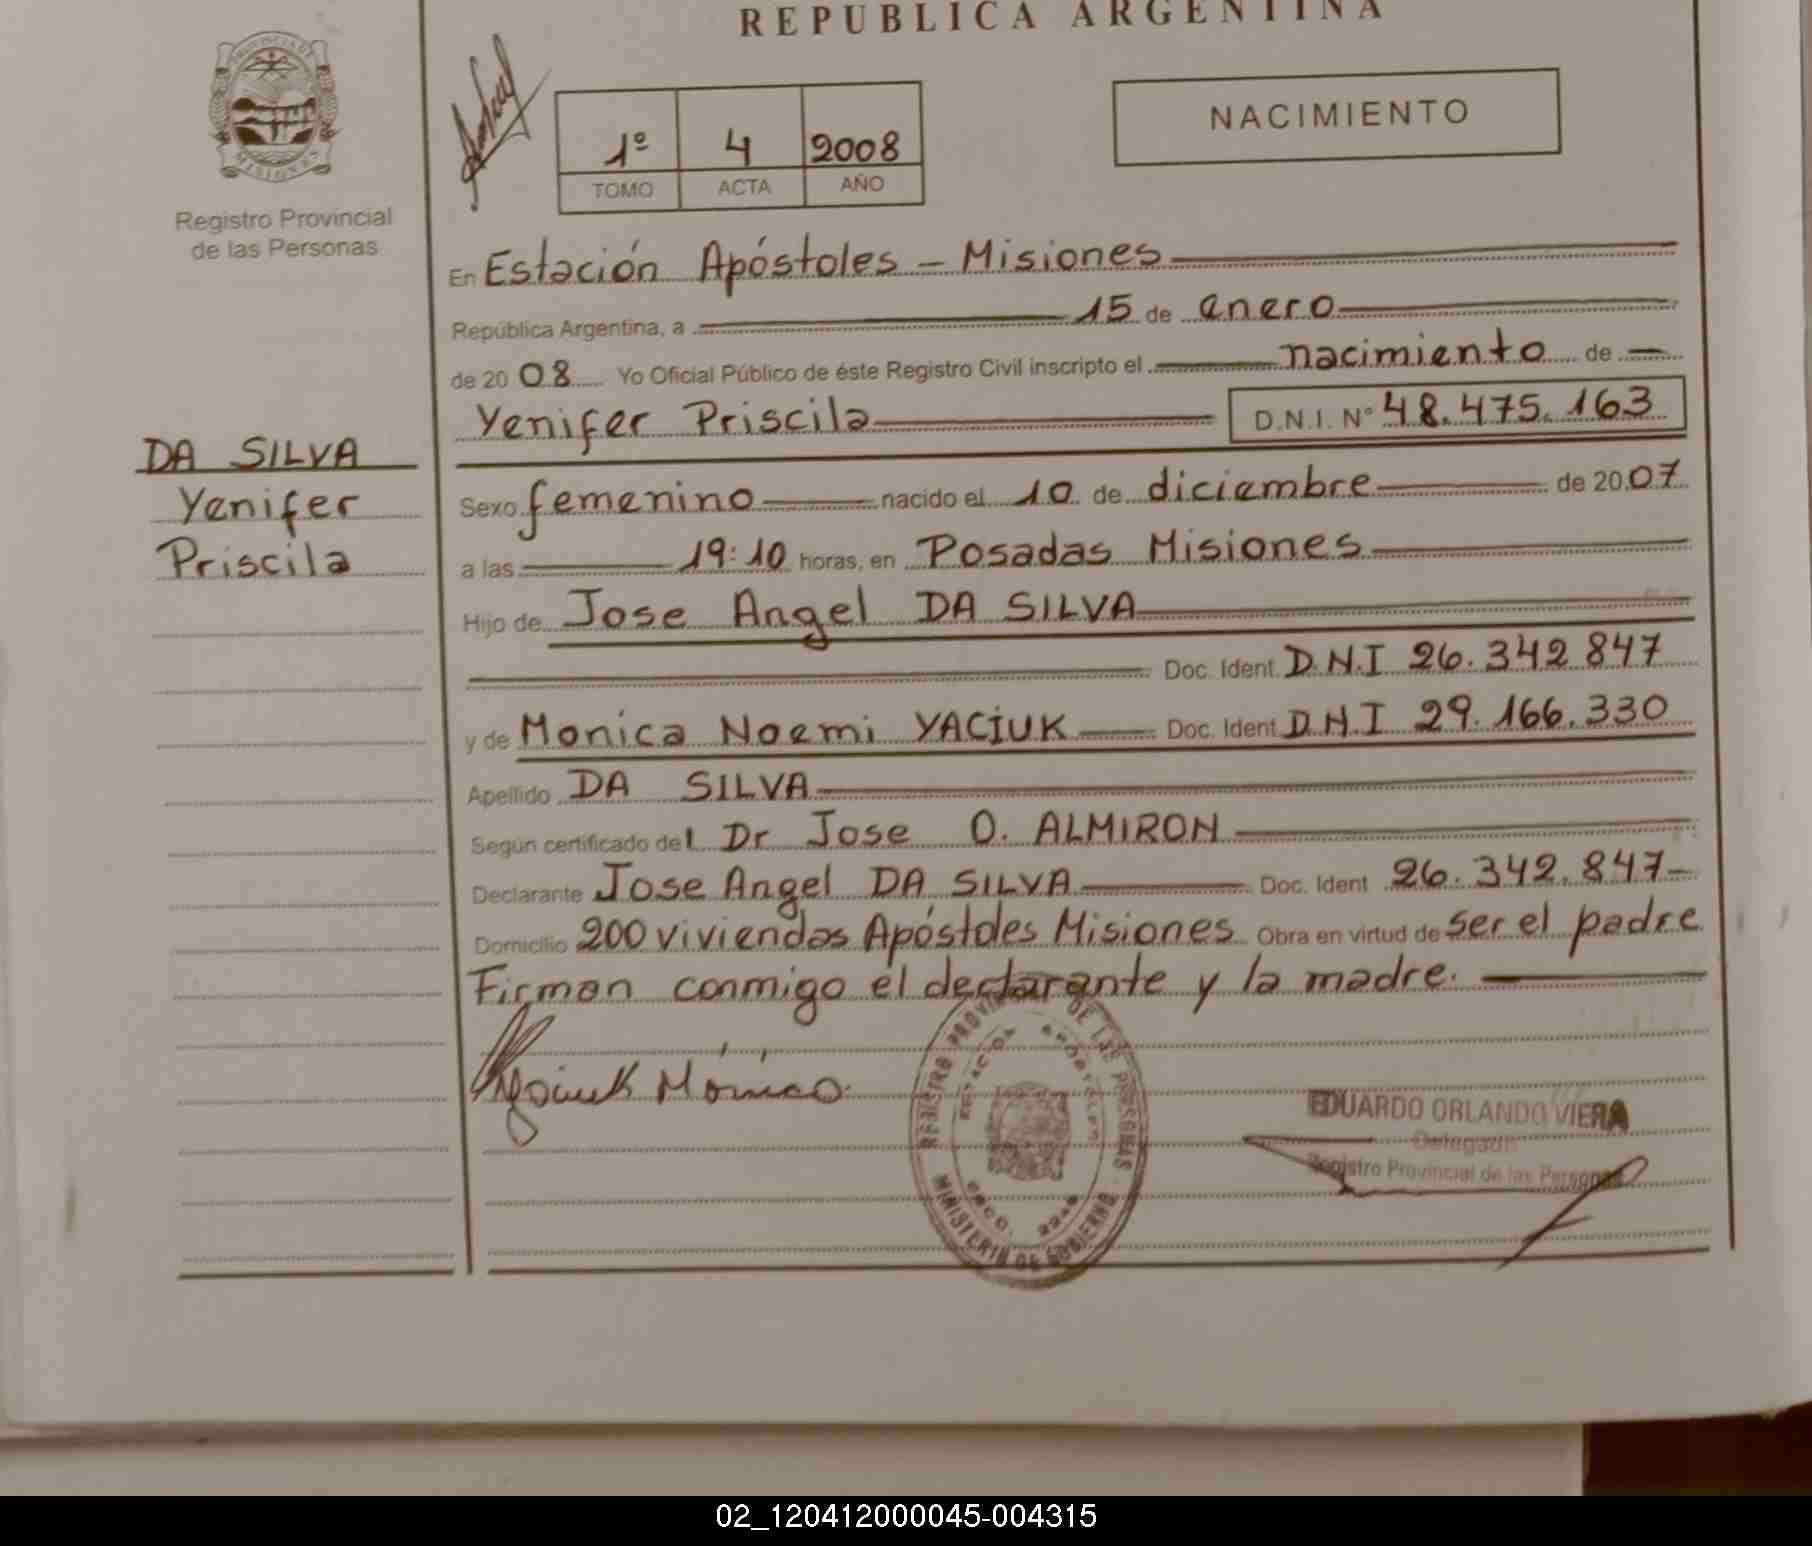 REPUBLICA ARGENTINA
PROVINCIA DE
MISIONES
Registro Provincial
de las Personas
1º 4 2008
TOMO ACTA AÑO
NACIMIENTO
En Estación Apóstoles - Misiones
República Argentina, a 15 de enero
de 2008 Yo Oficial Público de éste Registro Civil inscripto el nacimiento de
Yenifer Priscila D.N.I. Nº 48.475.163
DA SILVA
Yenifer
Priscila
Sexo femenino nacido el 10 de diciembre de 2007
a las 19:10 horas, en Posadas Misiones
Hijo de Jose Angel DA SILVA
Doc. Ident. D.N.I 26.342.847
y de Monica Noemi YACIUK Doc. Ident. D.N.I 29.166.330
Apellido DA SILVA
Según certificado del Dr Jose O. ALMIRON
Declarante Jose Angel DA SILVA Doc. Ident 26.342.847-
Domicilio 200 viviendas Apóstoles Misiones Obra en virtud de ser el padre
Firman conmigo el declarante y la madre.
Yaciuk Mónica
REGISTRO PROVINCIAL DE LAS PERSONAS
ESTACION APOSTOLES
MINISTERIO DE GOBIERNO
EDUARDO ORLANDO VIERA
Delegado
Registro Provincial de las Personas
02_120412000045-004315